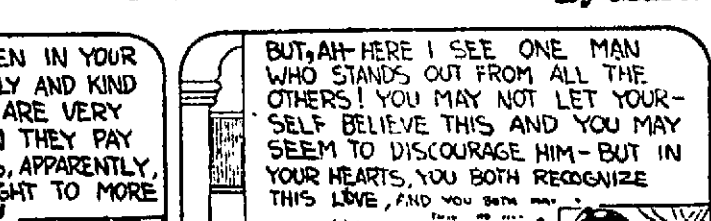 EN IN YOUR
LY AND KIND
ARE VERY
THEY PAY
, APPARENTLY,
GHT TO MORE
BUT, AH- HERE I SEE ONE MAN
WHO STANDS OUT FROM ALL THE
OTHERS! YOU MAY NOT LET YOUR-
SELF BELIEVE THIS AND YOU MAY
SEEM TO DISCOURAGE HIM- BUT IN
YOUR HEARTS, YOU BOTH RECOGNIZE
THIS LOVE, AND YOU BOTH